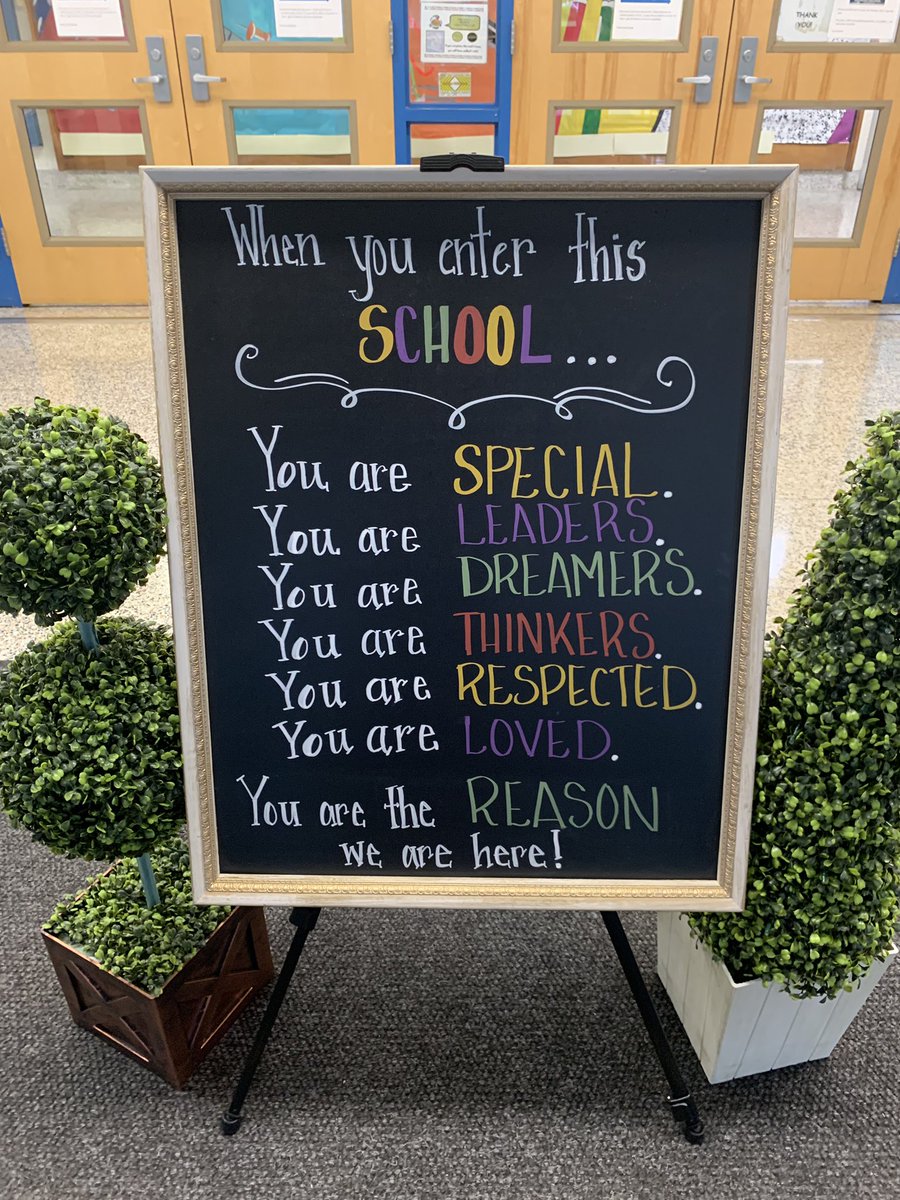 THANK
YOU!
When you enter this
SCHOOL...
You are SPECIAL.
You are LEADERS.
You are DREAMERS.
You are THINKERS.
You are RESPECTED.
You are LOVED.
You are the REASON
we are here!